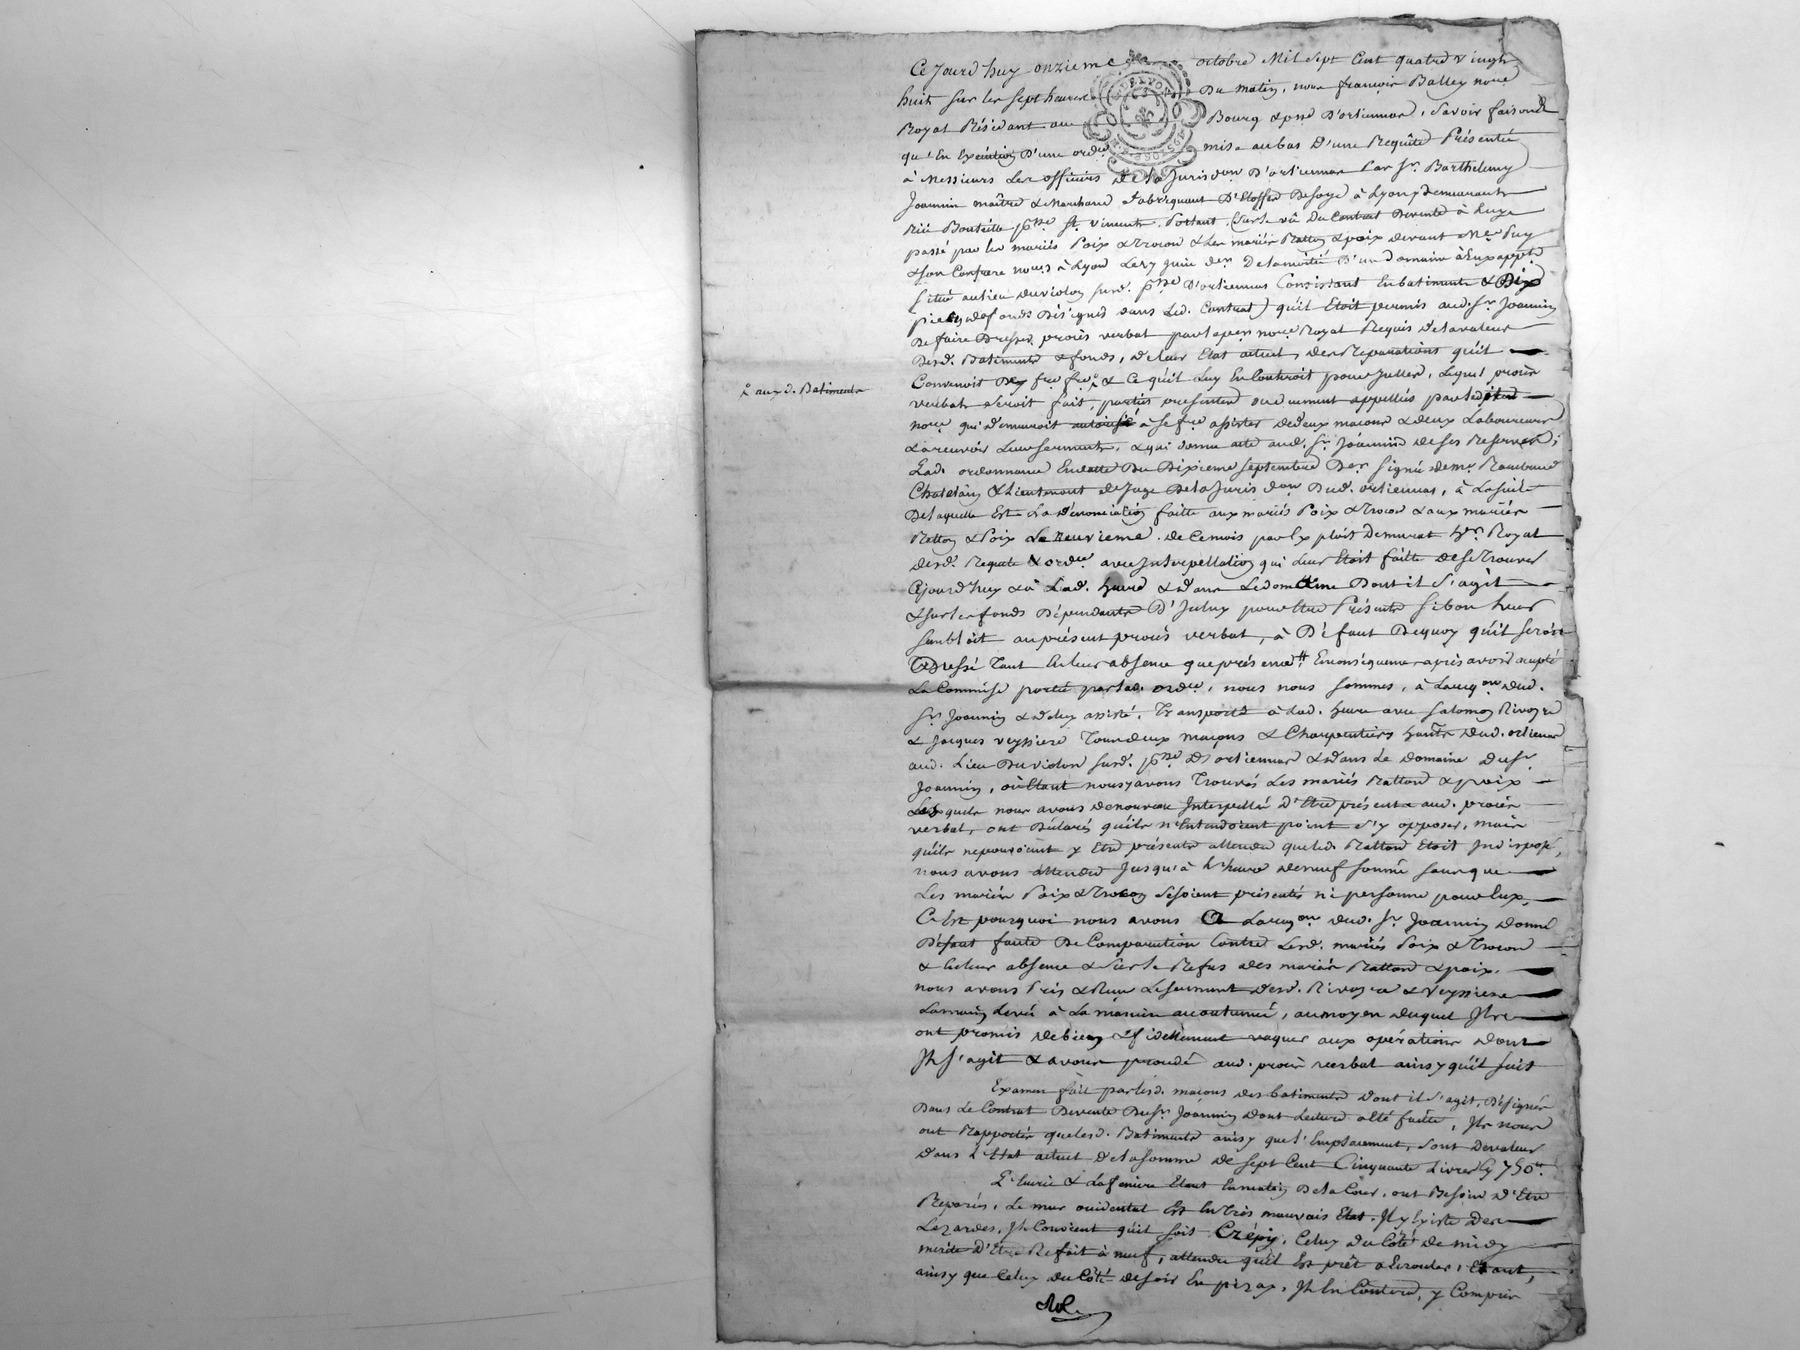 Ce Jourd'huy onzieme octobre Mil Sept Cent quatre vingt
huit sur les sept heures Du matin, nous françois Balley nore
Royal Résidant au Bourg & psse D'ortiennas, Savoir faisons
qu'En Execution D'une ordce mise au bas D'une Requête Présentée
à Messieurs Les officiers De la Jurisdon D'ortiennas Par Sr. Barthelemy
Joannin maître & Marchand fabriquant D'Etoffes De soye à Lyon y demeurant
Rüe Bouteille psse St. Vincent, Portant (Sur le vû Du Contrat De vente à luy
passé par les mariés Poix & & les mariés Ratton & poix devant Me Puy
& son Confrere nores à Lyon Le juin der De la moitié D'un Domaine à Eux appt
situé au lieu du violon surd. psse D'ortiennas Consistant En batiments & Dix
pieces de fonds Désignés dans Led. Contrat) qu'il Etoit permis aud. Sr. Joannin
De faire Dresser procès verbal par le per nore Royal Requis De la valeur
Desd. Batiments & fonds, De leur Etat actuel, des Reparations qu'il
Convenoit fre & Ce qu'il Luy En Couteroit pour Jcelles, Lequel procès
+ auxd. Batiments
verbal seroit fait, parties presentes ou duement appellées par led.
nore qui demeuroit autorisé à se fre assister de deux macons & deux Laboureurs
& à recevoir Leur serment, & qui donne acte aud. Sr. Joannin de ses Reserves;
Lad. ordonnance En datte Du Dixieme Septembre Der Signée de mr. Rambaud
Chatelain & Lieutenant de Juge De la Jurisdon Dud. ortiennas, à La suite
De laquelle Est La Dénonciation faitte aux mariés Poix & & aux mariés
Ratton & Poix Le neuvieme de Ce mois par Exploit De murat hr. Royal
desd. Requete & ordce avec Interpellation qui Leur Etoit faitte de se Trouver
Cejourd'huy & à Lad. heure & dans Le domaine Dont il s'agit
& sur les fonds Dépendants D'Jceluy pour Etre Présents si bon leur
sembloit au présent procès verbal, à Défaut De quoy qu'il seroit
Dressé Tant En leur absence que présence. En conséquence après avoir accepté
La Commise portée par lad. ordce, nous nous sommes, à La requon dud.
Sr. Joannin & de luy assisté, Transporté à Lad. heure avec Salomon Rivoyre
& Jacques veyssiere Tous deux maçons & Charpentiers habts dud. ortiennas
aud. Lieu Du violon surd. psse D'ortiennas & dans Le Domaine dud. Sr
Joannin, où Etant nous y avons Trouvés Les mariés Ratton & poix
Lesquels nous avons de nouveau Interpellés d'Etre présents aud. procès
verbal, ont Déclarés qu'ils n'Entendoient point s'y opposer, mais
qu'ils ne pouvoient y Etre présents attendu que led. Ratton Etoit Indisposé,
nous avons attendu Jusqu'à L'heure de neuf sonnée sans que
Les mariés Poix & se soient présentés ni personne pour Eux,
C'Est pourquoi nous avons à La requon dud. Sr. Joannin Donné
Défaut faute De Comparution Contre Lesd. mariés Poix &
& En leur absence & sur le Refus des mariés Ratton & poix,
nous avons Pris & Reçu Le serment desd. Rivoyre & Veyssiere
La main Levée à La maniere accoutumée, au moyen duquel Ils
ont promis de bien & fidellement vaquer aux opérations dont
Il s'agit & avons procedé aud. procès verbal ainsy qu'il suit
Examen fait par lesd. maçons des batiments dont il s'agit, Désignés
Dans Le Contrat De vente Dud. Sr. Joannin dont Lecture a Eté faitte, Ils nous
ont Rapportés que lesd. Batiments ainsy que l'Emplacement, sont De valeur
dans L'Etat actuel De la somme de sept Cent Cinquante Livres Cy 750ll.
L'Ecurie & La feniere Etant En matin De la Cour, ont Besoin d'Etre
Reparés, Le mur occidental Est En très mauvais Etat, Il y Existe des
Lezardes, Il Convient qu'il soit Crépy, Celuy du Coté de midy
mérite D'Etre Refait à neuf, attendu qu'il Est prêt a Ecrouler, Etant,
ainsy que Celuy du Côté de soir En pizay, Il En Coutera, y Compris